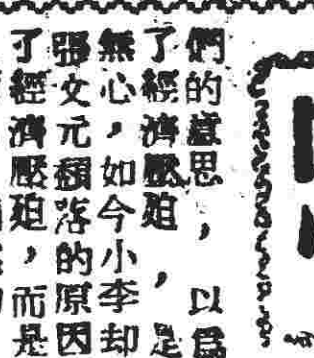 們的意思，以為
了經濟壓迫，是
無心，如今小李却
張文元頹落的原因
了經濟壓迫，而是